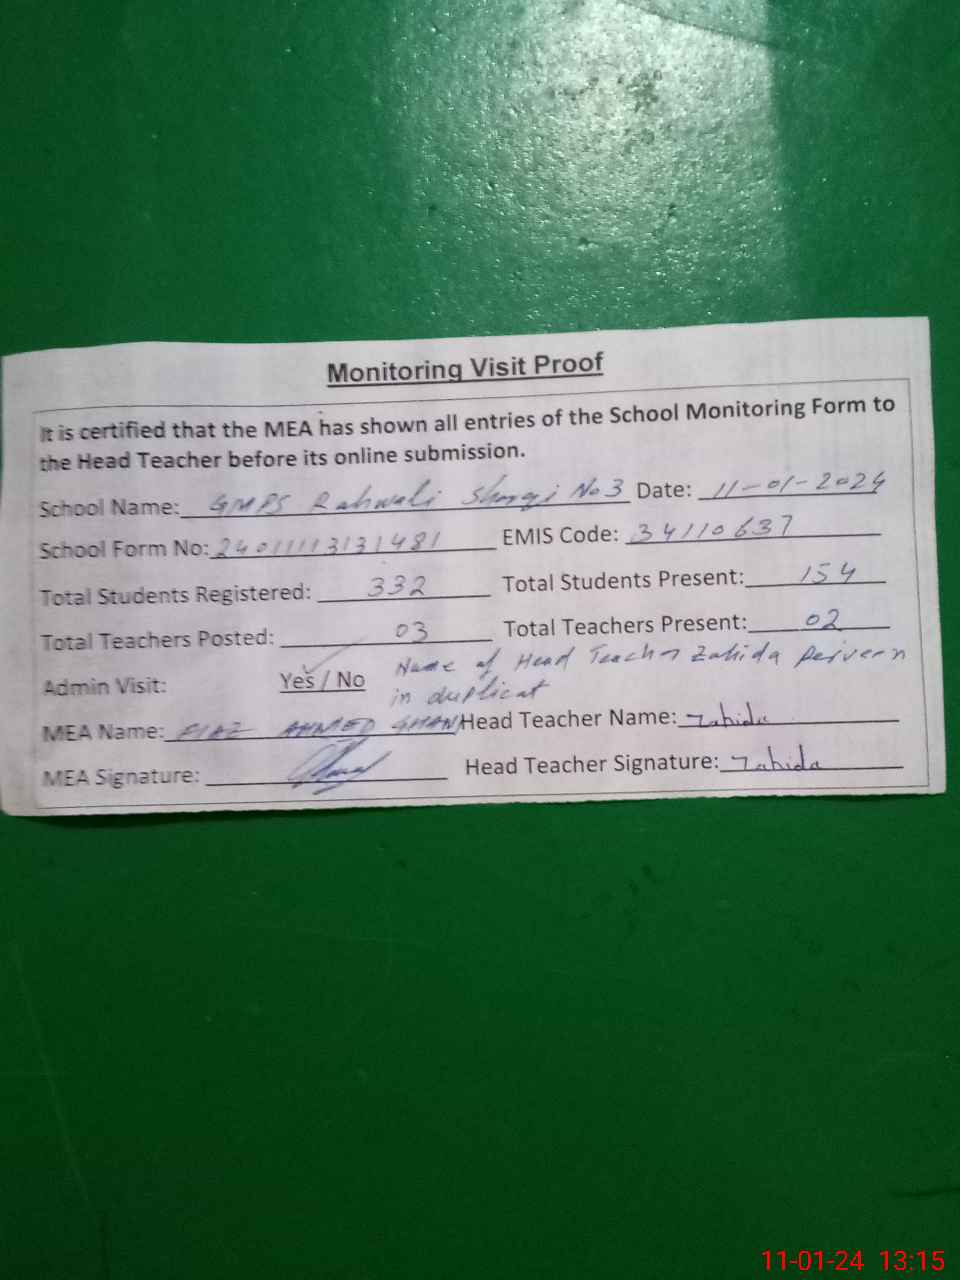 Monitoring Visit Proof
It is certified that the MEA has shown all entries of the School Monitoring Form to
the Head Teacher before its online submission.
School Name: GMPS Rahwali Sharqi No 3 Date: 11-01-2024
School Form No: 24011113131481 EMIS Code: 34110637
Total Students Registered: 332 Total Students Present: 154
Total Teachers Posted: 03 Total Teachers Present: 02
Admin Visit: Yes / No Name of Head Teacher Zahida Perveen
in duplicat
MEA Name: FIAZ AHMED GHAN Head Teacher Name: Zahida
MEA Signature: Head Teacher Signature: Zahida
11-01-24 13:15